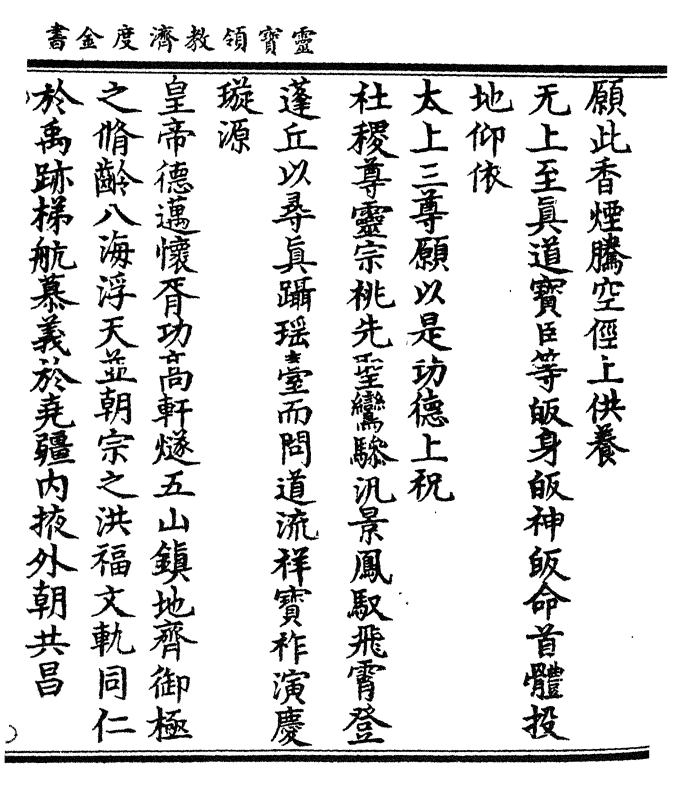 靈寶領教濟度金書
願此香煙騰空徑上供養
无上至眞道寶臣等皈身皈神皈命首體投
地仰依
太上三尊願以是功德上祝
社稷尊靈宗祧先聖鸞驂汎景鳳馭飛霄登
蓬丘以尋眞躡瑶臺而問道流祥寶祚演慶
璇源
皇帝德邁懷胥功高軒燧五山鎮地齊御極
之脩齡八海浮天並朝宗之洪福文軌同仁
於禹跡梯航慕義於堯疆内掖外朝共昌